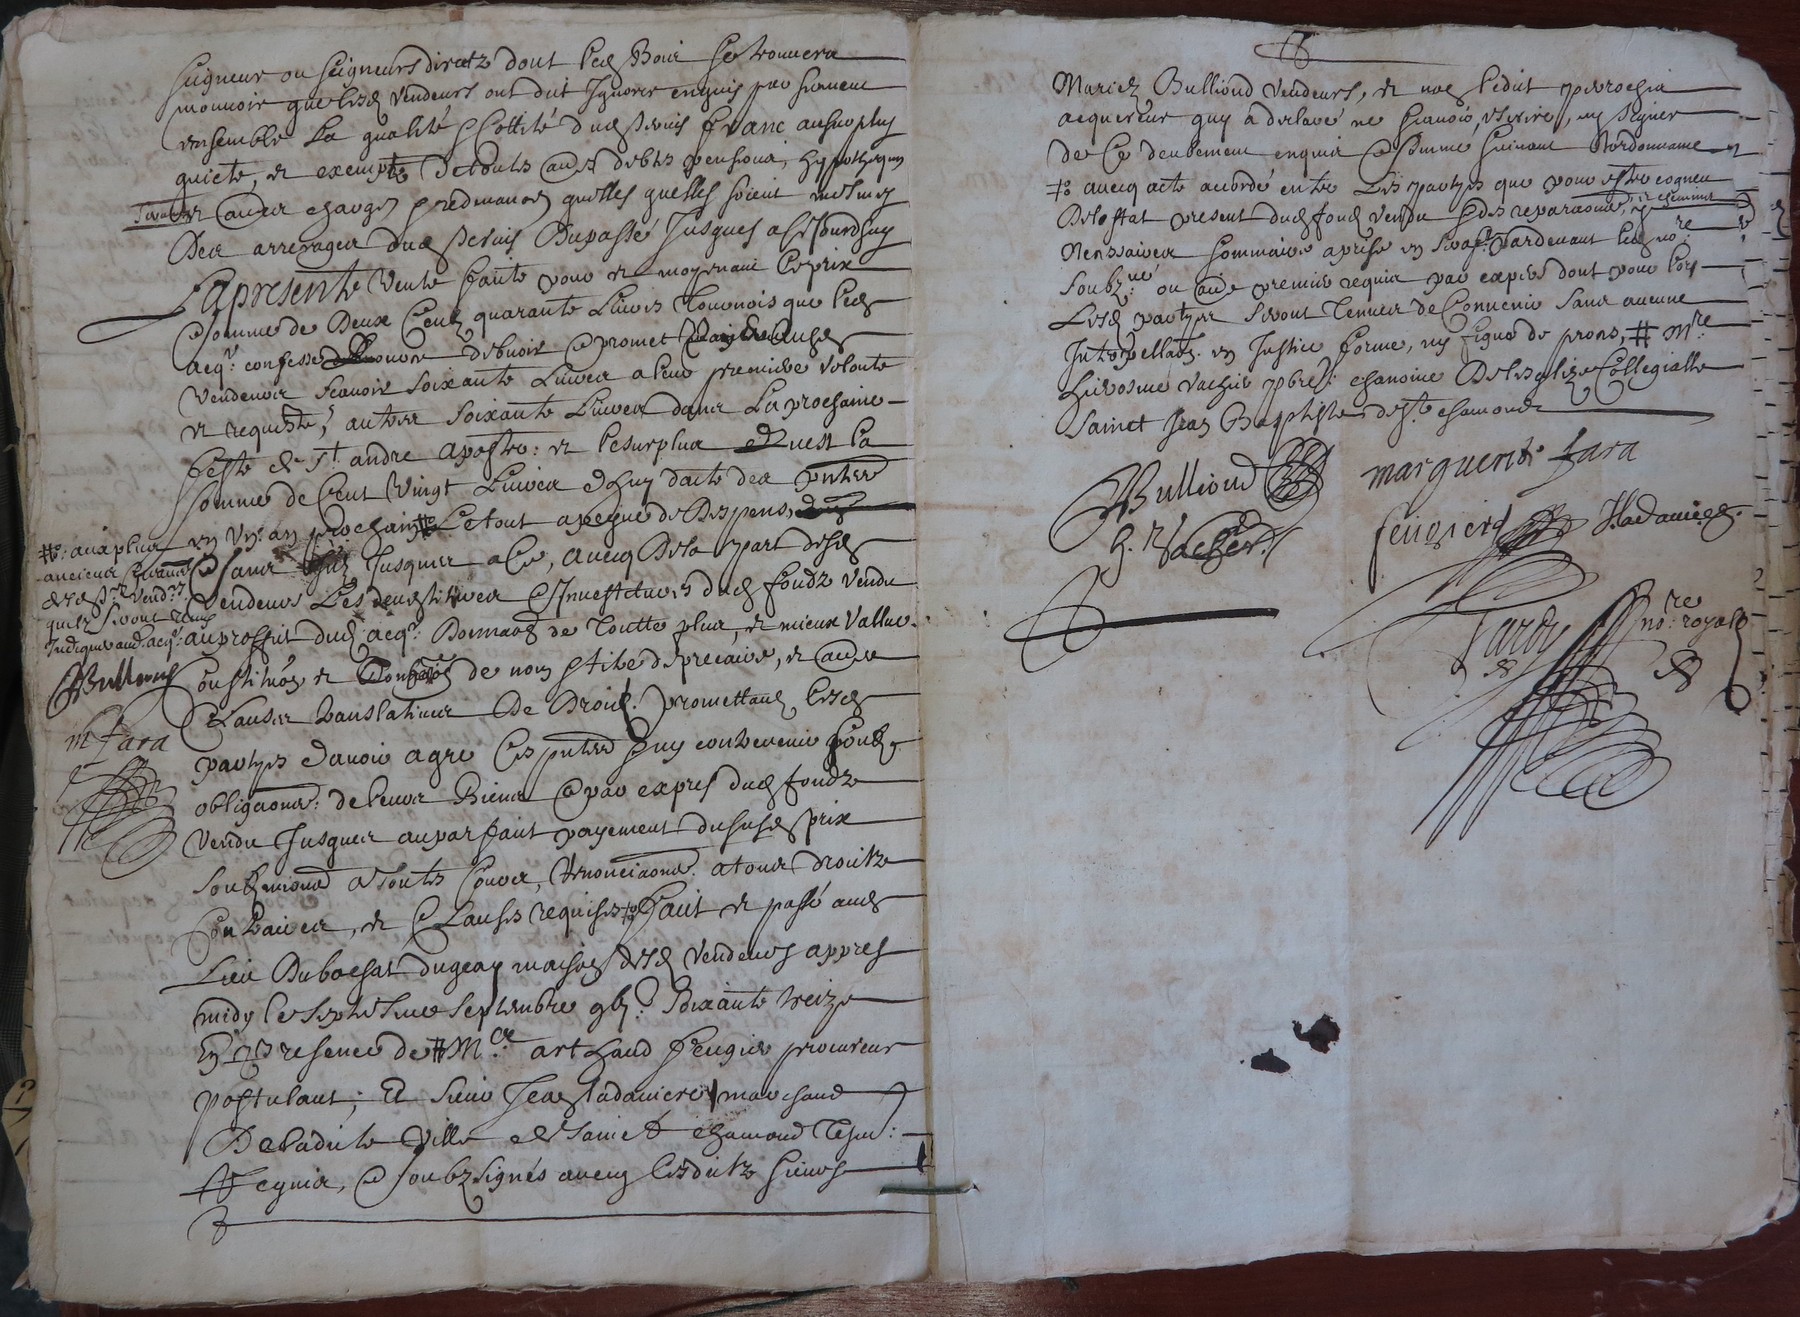 seigneur ou seigneurs directz dont led Bois se trouvera
mouvoir que lesd vendeurs ont dit Ignorer enquis par serment
ensemble la qualité & cottité dud servis franc au surplus
quicte, et exempte de toutes autres debtes pensions, hypotheques
servitudes autres charges quelles quelles soient mesmes
des arrerages dud servis du passé Jusques a ce Jourdhuy
La presente vente faite pour et moyenant le prix
& somme de Deux Cents quarante Livres Tournois que led
acqr. confesse debvoir & promet payer ausd
vendeurs scavoir soixante Livres a leur premiere volonte
et requeste, autres soixante Livres dans La prochaine
feste de st. andre apostre: et le surplus la
somme de Cent Vingt Livres d'huy datte des pntes
en Un an prochain # Le tout a peyne de Despens,
& sans Jusques a ce, avecq De la part desd
vendeurs Les devestitures & Investitures dud fondz vendu
au proffit dud acqr. Donnaon de Toutte plus, et mieux Vallue
Constituon et de nom & tiltre de precaire, et autres
Clauses translatives De Droit. promettans lesd
partyes d'avoir agre Ces pntes & ny contrevenir soubz
obligaons: de leurs Biens & par expres dud fondz
vendu Jusques au parfait payement du susd prix
soubzmissions a toutes Cours, renonciaons. a tous droitz
Contraires, et Clauses requises # fait et passé aud
Lieu Du bachat maison desd vendeurs appres
midy le septiesme septembre gbj.c soixante treize
En presence de # M.re arthaud feugier procureur
postulant; Et sieur Jean ladaviere marchand
De ladite Ville de sainct chamond Tesm:
Requis, & soubzsignés avecq lesditz sieurs
#: aux plus
anciens
desd vendrs.
quilz seront tenus
Indiquer aud. acqr.
Bulliond
m fara
Mariez Bulliond vendeurs, et non ledit
acquereur quy a declaré ne scavoir escrire, ny signer
de Ce deubement enquis & somme suivant l'ordonnance
# avecq acte accordé entre Les partyes que pour estre cogneu
De lestat present dud fond vendu & des reparaons,
Necessaires sommaire aprise en sera pardevant led nore.
soubzne. ou autre premier requis par expers dont pour lors
Lesd partyes seront Tenues de Convenir sans aucune
Interpellaon. en Justice forme, ny figure de proces, # Mre
hierosme vachier pbre: chanoine De lesglize Collegialle
Sainct Jean Baptiste de st. chamond
Bulliond marguerite fara
h. Vachier. feugierd Hadaviere.
Tardy nore. royal